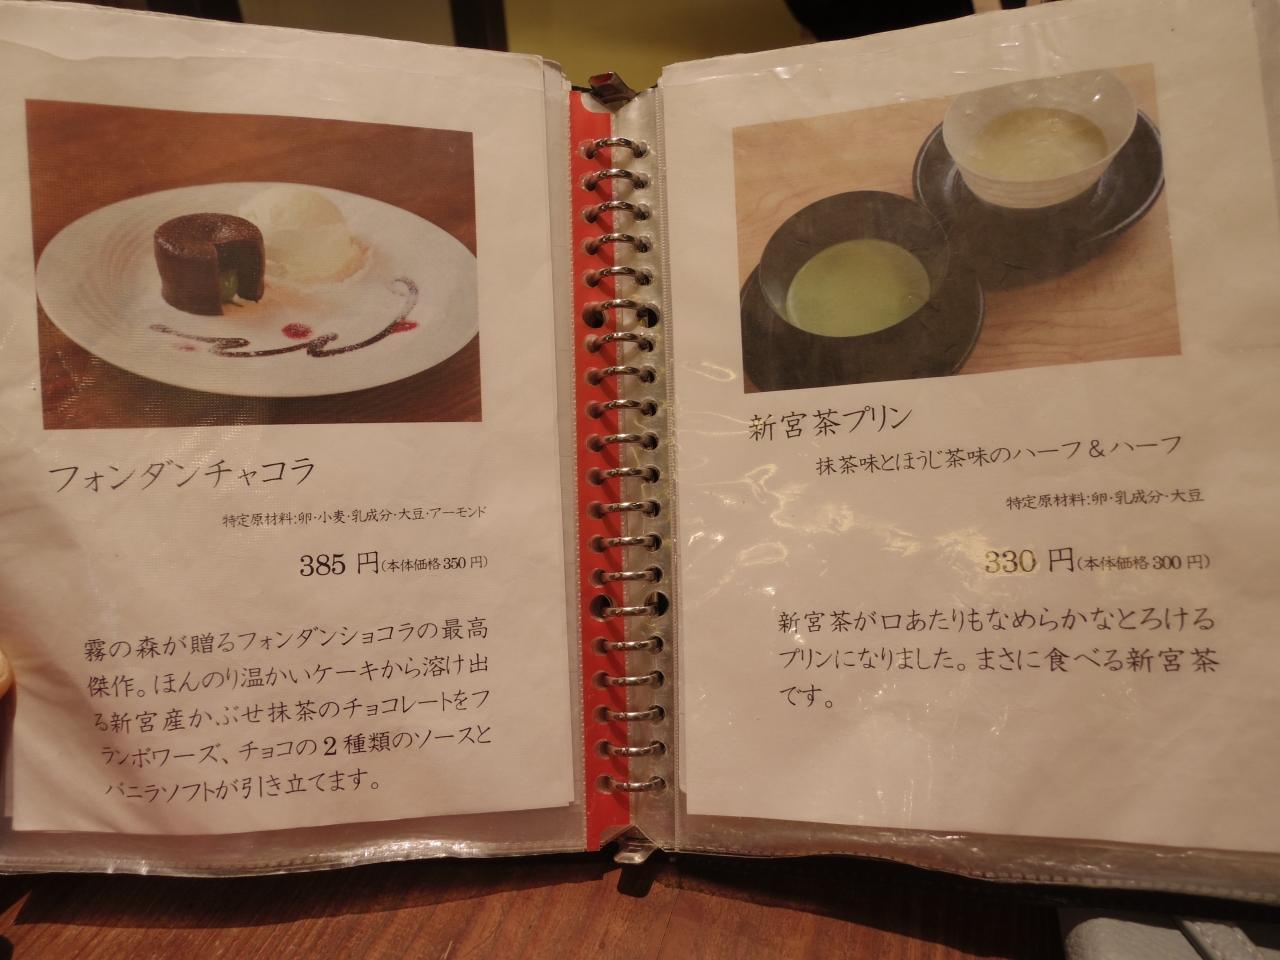 フォンダンチャコラ
特定原材料:卵・小麦・乳成分・大豆・アーモンド
385 円(本体価格350円)
霧の森が贈るフォンダンショコラの最高
傑作。ほんのり温かいケーキから溶け出
る新宮産かぶせ抹茶のチョコレートをフ
ランボワーズ、チョコの2種類のソースと
バニラソフトが引き立てます。
新宮茶プリン
抹茶味とほうじ茶味のハーフ&ハーフ
特定原材料:卵・乳成分・大豆
330 円(本体価格300円)
新宮茶が口あたりもなめらかなとろける
プリンになりました。まさに食べる新宮茶
です。